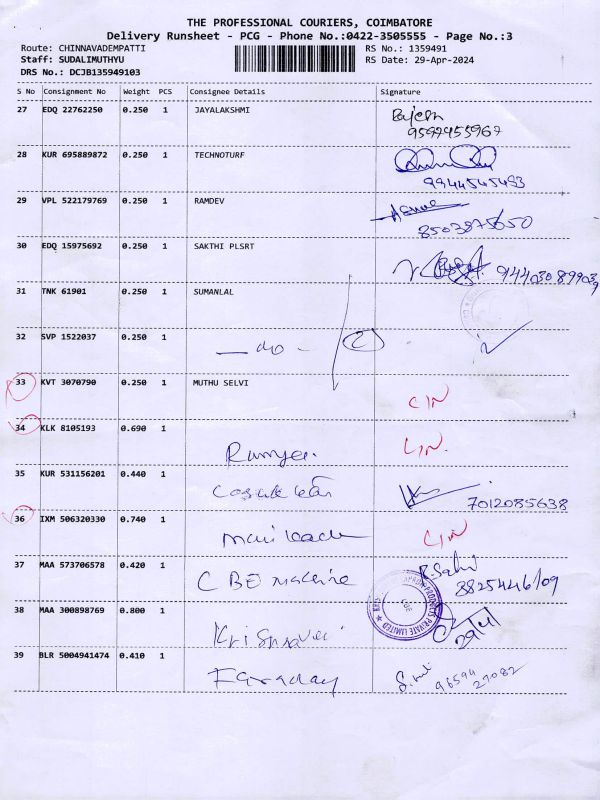 THE PROFESSIONAL COURIERS, COIMBATORE
Delivery Runsheet - PCG - Phone No.:0422-3505555 - Page No.:3
Route: CHINNAVADEMPATTI RS No.: 1359491
Staff: SUDALIMUTHYU RS Date: 29-Apr-2024
DRS No.: DCJB135949103
S No Consignment No Weight PCS Consignee Details Signature
27 EDQ 22762250 0.250 1 JAYALAKSHMI Rajesh
28 KUR 695889872 0.250 1 TECHNOTURF
9944545493
29 VPL 522179769 0.250 1 RAMDEV
8503875650
30 EDQ 15975692 0.250 1 SAKTHI PLSRT
31 TNK 61901 0.250 1 SUMANLAL
32 SVP 1522037 0.250 1 — do - 2
33 KVT 3070790 0.250 1 MUTHU SELVI
34 KLK 8105193 0.690 1
35 KUR 531156201 0.440 1
7012085638
36 IXM 506320330 0.740 1
37 MAA 573706578 0.420 1 CBE Machine
38 MAA 300898769 0.800 1
PRIVATE LIMITED
29/4
39 BLR 5004941474 0.410 1 Faraday
96594
27082